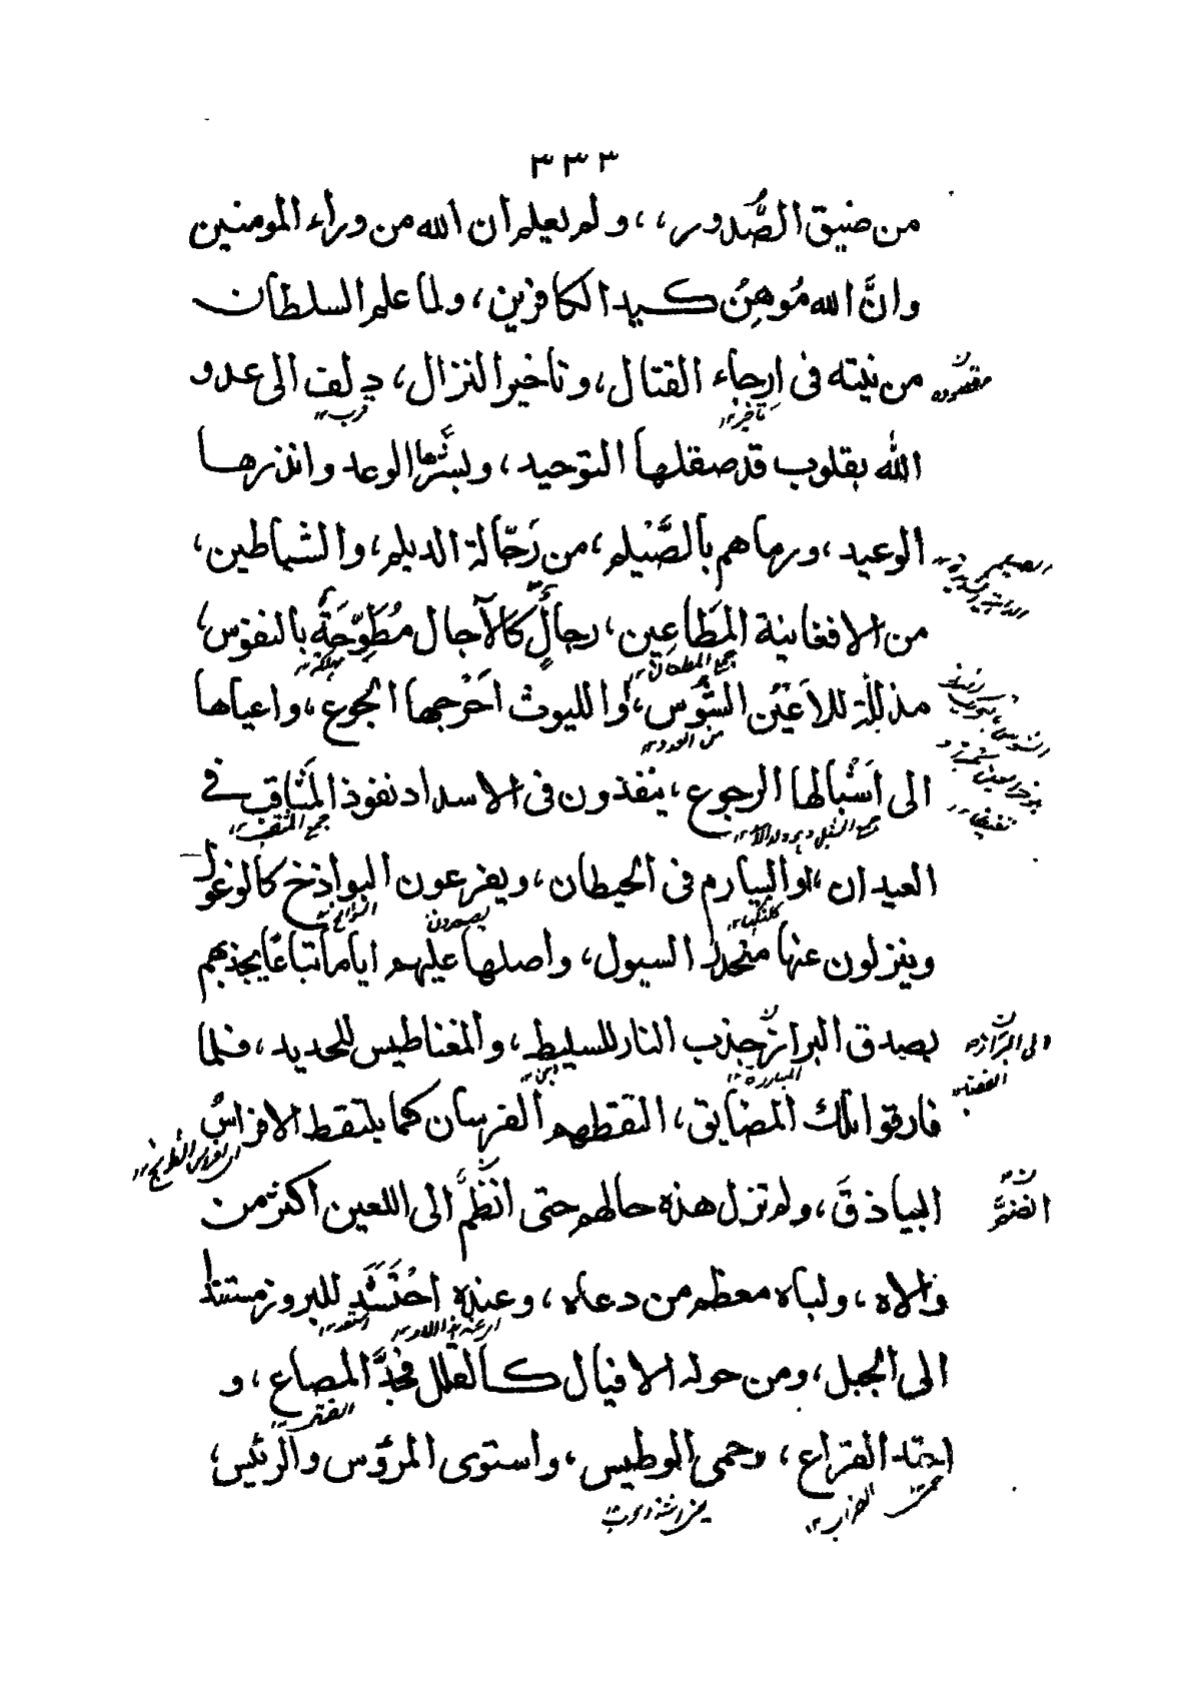 ٣٣٣
من ضيق الصُّدور،، ولم يعلم ان الله من وراء المومنين
وانَّ الله مُوهِنُ كيد الكافرين، ولما علم السلطان
من نيته فى اِرجاء القتال، وتاخير النزال، دلف الى عدو
تاخير قرب
الله بقلوب قد صقلها التوحيد، وبشَّرها الوعد وانذرها
الوعيد، ورماهم بالصَّيلم، من رَجّالة الديلم، والشياطين،
من الافغانية المَطاعِين، رجالٍ كالآجال مُطَوِّحَةٍ بالنفوس،
مهلكة
مذللة للاَعيُن الشُوس، اوالليوث اَخرجها الجوع، واعياها
الى اَشْبالها الرجوع، ينفذون فى الاسداد نفوذ المَثاقب فے
العيدان، اوالبيارم فى الحيطان، ويفرعون البواذخ كالوغول
يصعدون
وينزلون عنها منحدر السيول، واصلها عليهم اياما تباعًا يجذبهم
بصدق البراز جذب النار للسليط، والمغناطيس للحديد، فلما
فارقوا تلك المضايق، التقطهم الفرسان كما يلتقط الافراسُ
البياذقَ، ولم تزل هذه حالهم حتى انضَّمَّ الى اللعين اكثر من
والاه، ولباه معظم من دعاه، وعنده احْتَشَدَ للبروز مستندا
الى الجبل، ومن حوله الافيال كالقلل فجدَّ المصاع، و
اشتد القراع، وحمى الوطيس، واستوى المرؤس والرئيس،